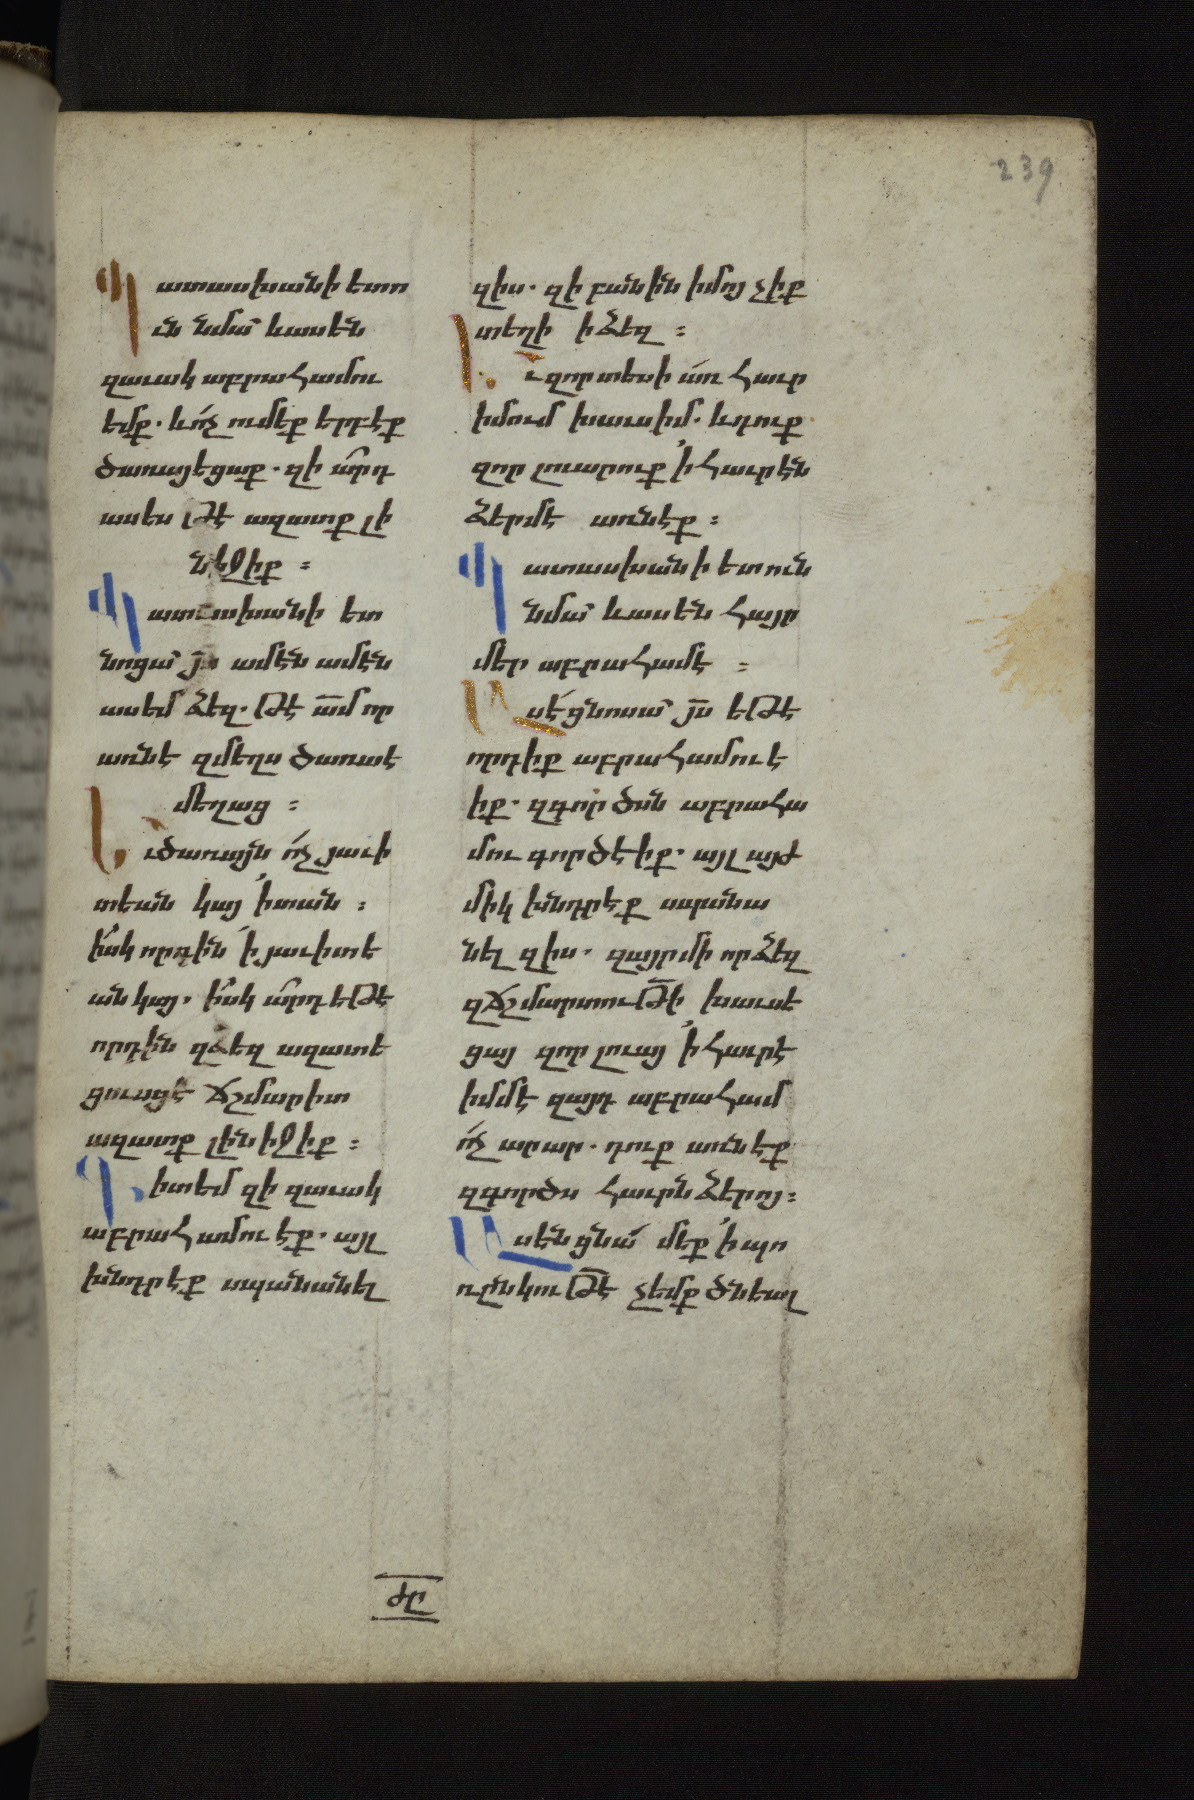 239
Պատասխանի ետո
ւն նմա՝ և ասեն
զաւակ աբրահամու
եմք. և ոչ ումեք երբէք
ծառայեցաք. զի՞ արդ
ասես թէ ազատք լի
նիջիք ։
Պատասխանի ետ
նոցա՝ յս ամէն ամէն
ասեմ ձեզ. թէ ամ որ
առնէ զմեղս ծառայ է
մեղաց ։
Եւ ծառայն ոչ յաւի
տեան կայ ՚ի տան ։
իսկ որդին ՚ի յաւիտե
ան կայ. իսկ արդ եթէ
որդին զձեզ ազատե
ցուսցէ ճշմարիտ
ազատք լինիջիք ։
Գիտեմ զի զաւակ
աբրահամու էք. այլ
խնդրէք սպանանել
զիս. զի բանին իմոյ չիք
տեղի ի ձեզ ։
Ես զոր տեսի առ հաւր
իմում խաւսիմ. և դուք
զոր լուարուք ՚ի հաւրէն
ձերմէ առնէք ։
Պատասխանի ետուն
նմա՝ և ասեն հայր
մեր աբրահամ է ։
Ասէ ցնոսա՝ յս եթէ
որդիք աբրահամու է
իք. զգործսն աբրահա
մու գործէիք. այլ այժ
միկ խնդրէք սպանա
նել զիս. զայր մի որ ձեզ
զճշմարտութի խաւսե
ցայ զոր լուայ ՚ի հաւրէ
իմմէ զայդ աբրահամ
ոչ արար. դուք առնէք
զգործս հաւրն ձերոյ ։
Ասեն ցնա՝ մեք ՚ի պո
ռընկութէ չեմք ծնեալ
ԺԸ